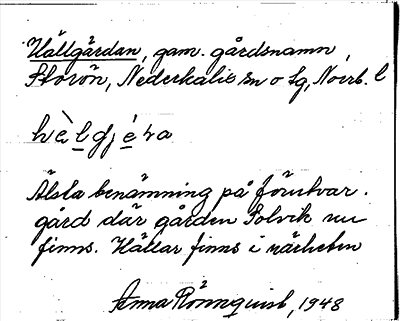 Hällgårdan, gam. gårdsnamn
Storön, Nederkalix sn o lg, Norrb. l
hὲlgjéra
Älsta benämning på förutvar.
gård där gården Solvik nu
finns. Hällar finns i närheten
Anna Rönnquist, 1948